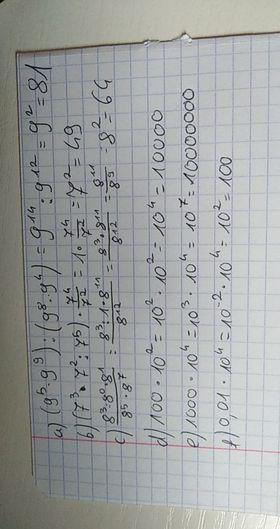 a) (9⁵·9⁹):(9⁸·9⁴)=9¹⁴:9¹²=9²=81
b) (7³·7²:7⁵)·7⁴/7²=1·7⁴/7²=7²=49
c) 8³·8⁰·8¹¹/8⁵·8⁷=8³·1·8¹¹/8¹²=8³·8¹¹/8¹²=8¹¹/8⁹·8²=64
d) 100·10²=10²·10²=10⁴=10000
e) 1000·10⁴=10³·10⁴=10⁷=10000000
f) 0,01·10⁴=10⁻²·10⁴=10²=100